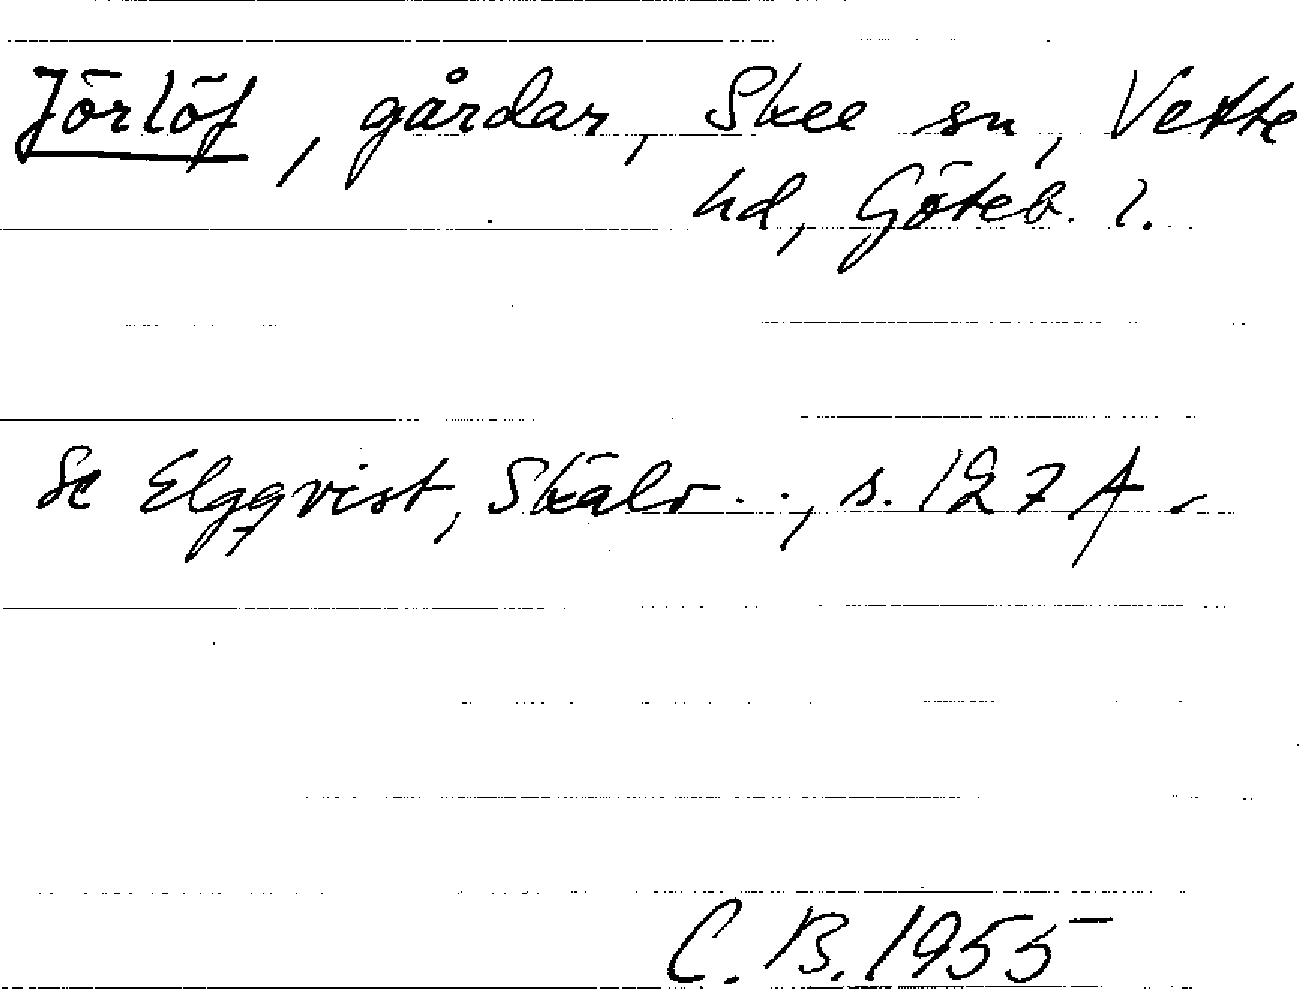 Jörlöf, gårdar, Skee sn, Vette
hd, Göteb. l.
Se Elgqvist, Skälv..., s. 127 f.
C. B. 1955